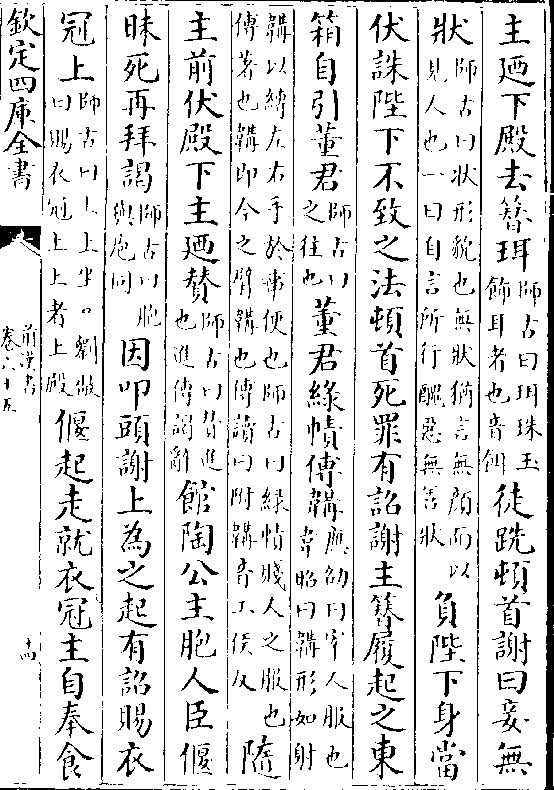 主廼下殿去簮珥師古曰珥珠玉飾耳者也音餌徒跣頓首謝曰妾無
狀師古曰狀形貌也無狀猶言無顔面以見人也一曰自言所行醜惡無善狀負陛下身當
伏誅陛下不致之法頓首死罪有詔謝主簮履起之東
箱自引董君師古曰之往也董君緑幘傅韝應劭曰宰人服也韋昭曰韝形如射
韝以縛左右手於事便也師古曰緑幘賤人之服也傅著也韝即今之臂韝也傅讀曰附韝音工侯反隨
主前伏殿下主廼贊師古曰贊進也進傳謁辭館陶公主胞人臣偃
昧死再拜謁師古曰胞與庖同因叩頭謝上為之起有詔賜衣
冠上師古曰上上坐劉敞曰賜衣冠上上者上殿偃起走就衣冠主自奉食
欽定四庫全書
前漢書
卷六十五
十四